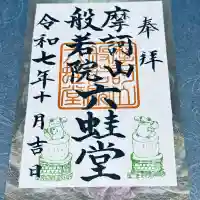 奉拝
摩訶山
六蛙堂
般若院
令和七年十月吉日